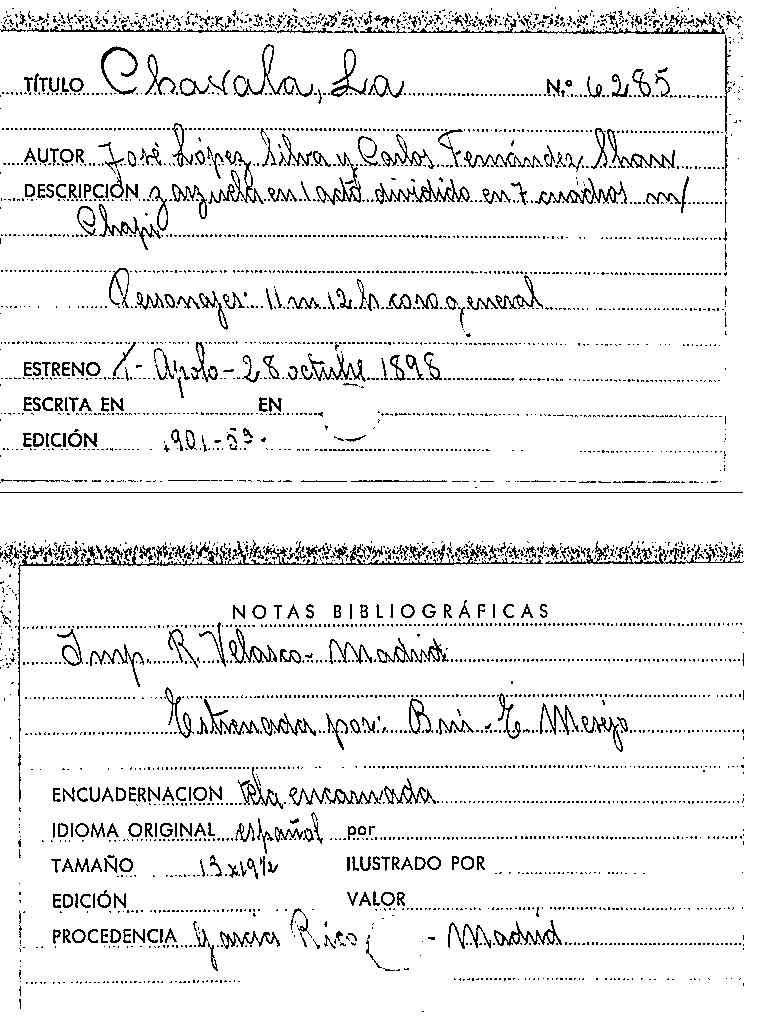 TÍTULO Chavala, La N.º 6285
AUTOR José López Silva y Carlos Fernández Shaw
DESCRIPCIÓN zarzuela en 1 acto dividido en 7 cuadros m/
Chapí
Personajes: 11 m 12 h coro general
ESTRENO T.- Apolo - 28 octubre 1898
ESCRITA EN EN
EDICIÓN 1901-53.
NOTAS BIBLIOGRÁFICAS
Imp. R. Velasco - Madrid
Estrenada por: Bru - E. Mesejo
ENCUADERNACION tela encarnada
IDIOMA ORIGINAL español por
TAMAÑO 13x19½ ILUSTRADO POR
EDICIÓN VALOR
PROCEDENCIA García Rico - Madrid